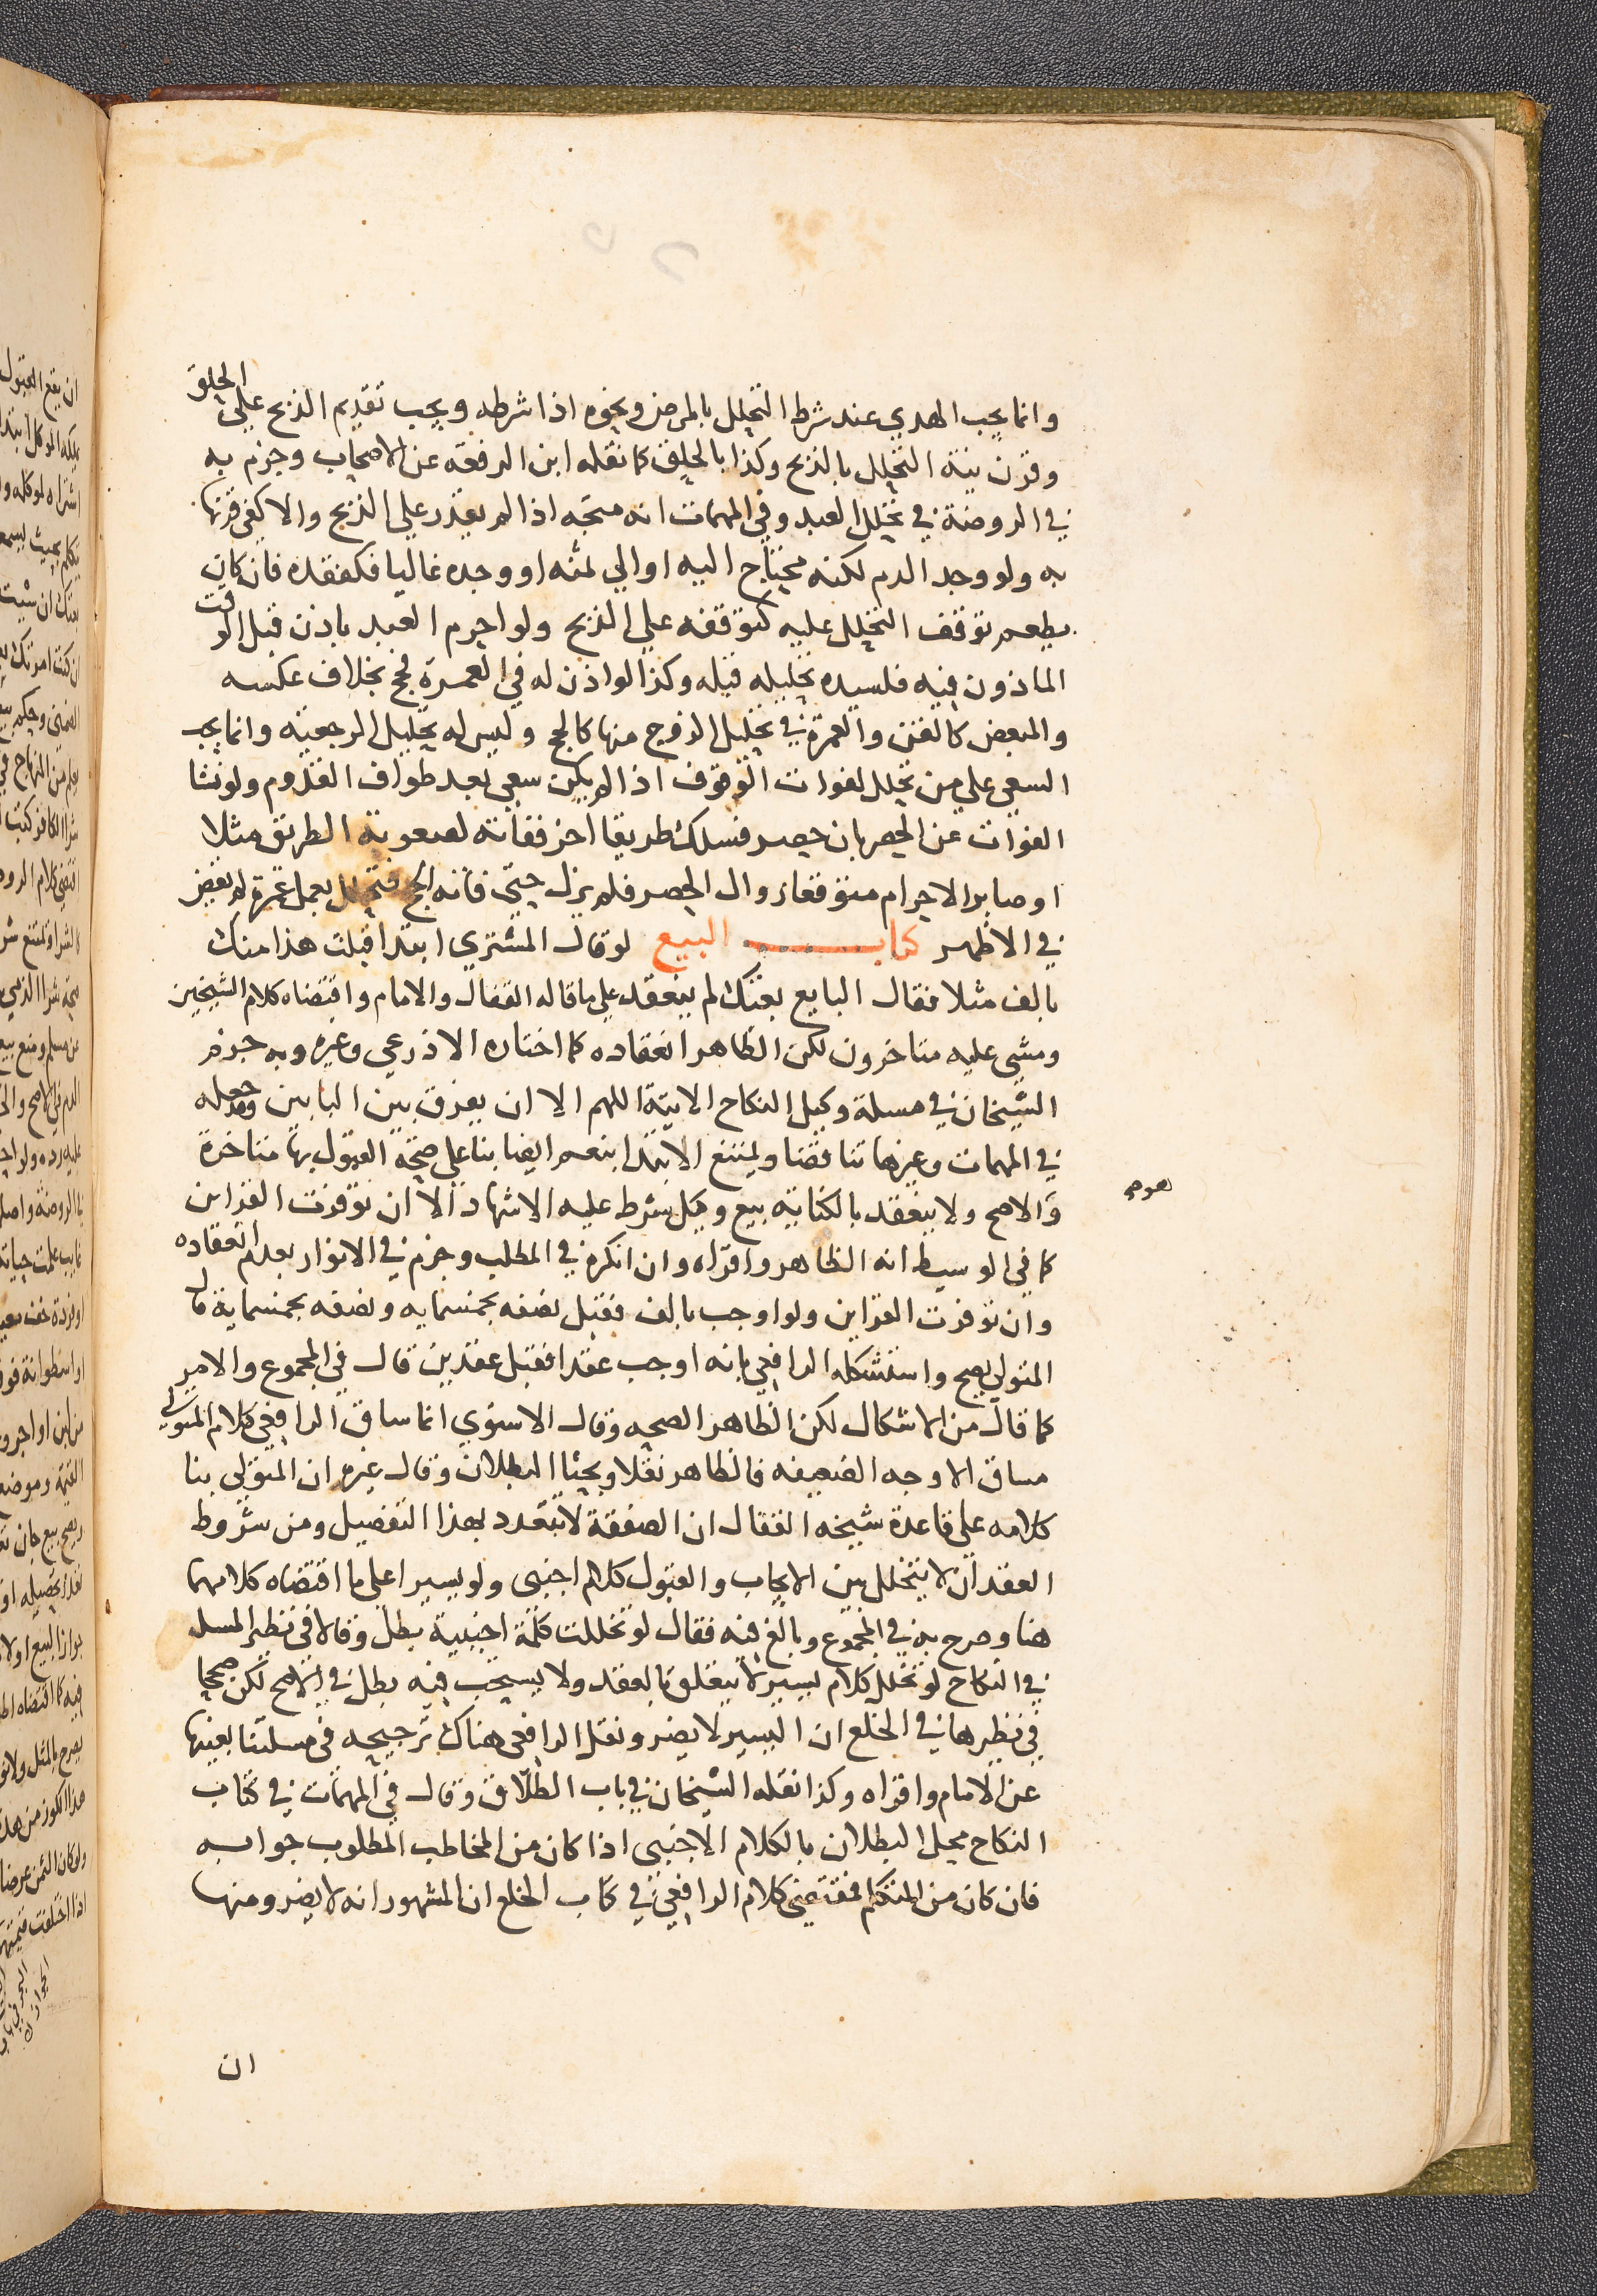 وانما يجب الهدي عند شرط التحلل بالمرض ونحوه اذا شرطه ويجب تقديم الذبح على الحلق
وقرن نية التحلل بالذبح وكذا بالحلق كما نقله ابن الرفعة عن الاصحاب وجزم به
في الروضة في تحلل العبد وفي المهمات انه متجه اذا لم يقدر على الذبح والا كفى قرنها
به ولو وجد الدم لكنه محتاج اليه او الي ثمنه او وجده غاليا فكفقده فان كان
يطعم توقف التحلل عليه كتوقفه علي الذبح ولو احرم العبد باذن قبل الوقت
الماذون فيه فلسيده تحليله قبله وكذا لو اذن له في العمرة فحج بخلاف عكسه
والمبعض كالقن والعمرة في تحليل الزوج منها كالحج وليس له تحليل الرجعية وانما يجب
السعي علي من تحلل لفوات الوقوف اذا لم يكن سعي بعد طواف القدوم ولو نشا
الفوات عن الحصر بان حصر فسلك طريقا اخر ففاته لصعوبة الطريق مثلا
او صابر الاحرام متوقعا زوال الحصر فلم يزل حتى فاته الحج فتحلل بعمل عمرة لم يقض
في الاظهر كتاب البيع لو قال المشتري ابتدا قبلت هذا منك
بالف مثلا فقال البايع بعتك لم ينعقد علي ما قاله القفال والامام واقتضاه كلام الشيخين
ومشى عليه متاخرون لكن الظاهر انعقاده كما اختاره الاذرعي وغيره وبه جزم
الشيخان في مسلة وكيل النكاح الاتية اللهم الا ان يفرق بين البابين وقد جعله
في المهمات وغيرها تناقضا ويمتنع الابتدا بنعم ايضا بنا على صحة القبول بها متاخرة
والاصح ولا ينعقد بالكناية بيع وكيل شرط عليه الاشهاد الا ان توفرت القراين
كما في الوسيط انه الظاهر واقراه وان انكره في المطلب وجزم في الانوار بعدم انعقاده
وان توفرت القراين ولو اوجب بالف فقبل نصفه بخمسمايه ونصفه بخمسماية قال
المتولي يصح واستشكله الرافعي بانه اوجب عقدا فقبل عقدين قال في المجموع والامر
كما قال من الاشكال لكن الظاهر الصحه وقال الاسنوي انما ساق الرافعي كلام المتولي
مساق الاوجه الضعيفه فالظاهر نقلا وبحثا البطلان وقال غيره ان المتولي بنا
كلامه على قاعدة شيخه القفال ان الصفقة لا تتعدد بهذا التفصيل ومن شروط
العقد ان لا يتخلل بين الايجاب والقبول كلام اجنبي ولو يسيرا على ما اقتضاه كلامهما
هنا وصرح به في المجموع وبالغ فيه فقال لو تخللت كلمة اجنبية بطل وقالا في نظير المسلة
في النكاح لو تخلل كلام يسير لا يتعلق بالعقد ولا يستحب فيه بطل في الاصح لكن صححا
في نظيرها في الخلع ان اليسير لا يضر ونقل الرافعي هناك ترجيحه في مسلتنا بعينها
عن الامام واقراه وكذا نقله الشيخان في باب الطلاق وقال في المهمات في كتاب
النكاح محل البطلان بالكلام الاجنبي اذا كان من المخاطب المطلوب جوابه
فان كان من المتكلم فمقتضى كلام الرافعي في كتاب الخلع ان المشهور انه لا يضر ومنها
ان